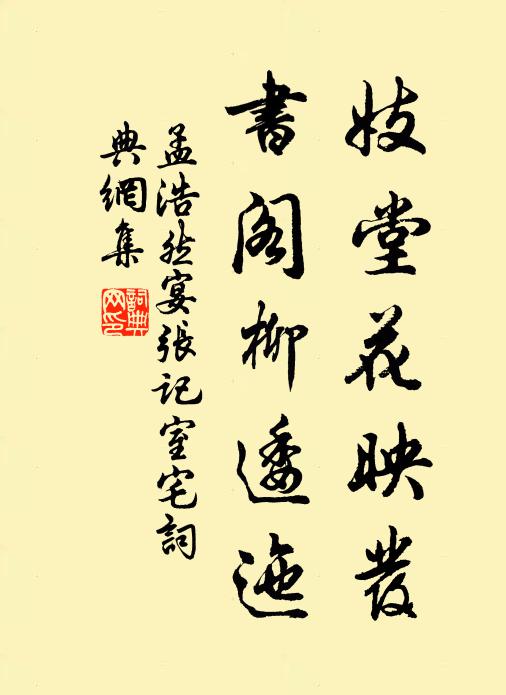 妓堂花映發
書閣柳逶迤
孟浩然宴張記室宅詞
典網集
詞典網印